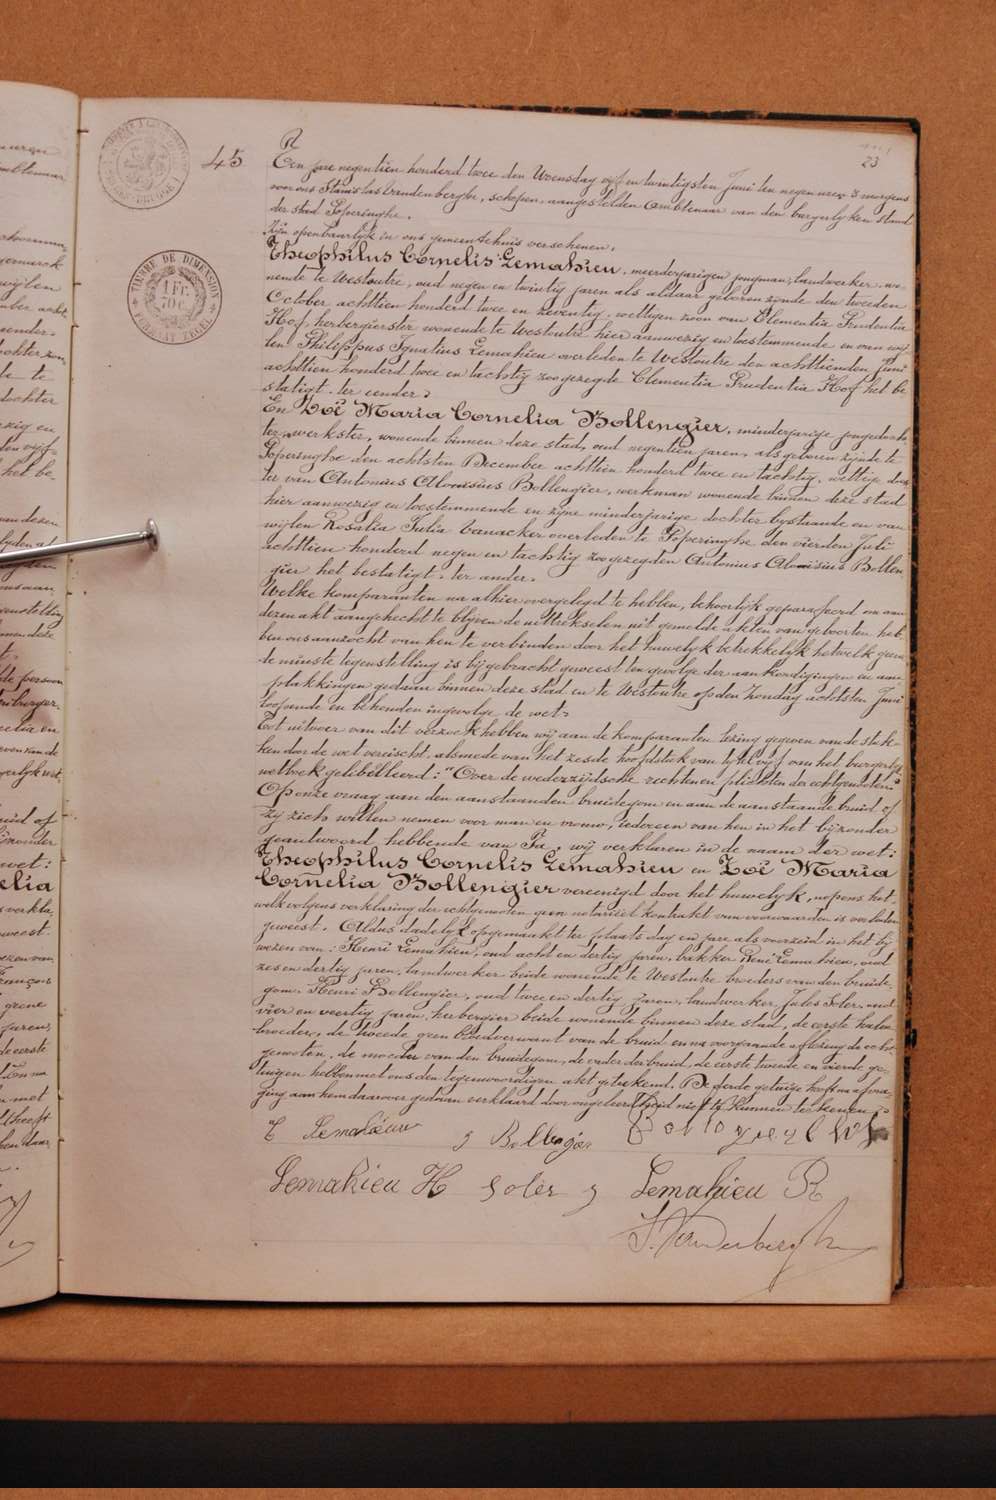 23
45
Een jare negentien honderd twee den Woensdag vijf en twintigsten Juni ten negen uren 's morgens
voor ons Stanislas Vandenberghe, schepen, aangestelden Ambtenaar van den burgerlyken stand
der stad Poperinghe.
Zijn openbaarlijk in ons gemeentehuis verschenen.
Theophilus Cornelis Lemahieu, meerderjarigen jongman, landwerker, wo-
nende te Westoutre, oud negen en twintig jaren als aldaar geboren zynde den tweeden
October achttien honderd twee en zeventig, wettigen zoon van Clementia Prudentia
Hof, herbergierster wonende te Westoutre hier aanwezig en toestemmende en van wij-
len Philippus Ignatius Lemahieu overleden te Westoutre den achttienden Juni
achttien honderd twee en tachtig zoo gezegde Clementia Prudentia Hof het be
statigt. ter eender.
En Zoë Maria Cornelia Bollengier, minderjarige jongedoch
ter, werkster, wonende binnen deze stad, oud negentien jaren, als geboren zijnde te
Poperinghe den achtsten December achttien honderd twee en tachtig, wettige doch
ter van Antonius Aloisius Bollengier, werkman wonende binnen deze stad
hier aanwezig en toestemmende en zijne minderjarige dochter bystaande en van
wijlen Rosalia Julia Vanacker overleden te Poperinghe den vierden Juli
achttien honderd negen en tachtig zoo gezegden Antonius Aloisius Bollen
gier het bestatigt. ter ander.
Welke komparanten na alhier overgelegd te hebben, behoorlijk geparafeerd om aan
dezen akt aangehecht te blijven de uittrekselen uit gemelde akten van geboorten, heb
ben ons aanzocht van hen te verbinden door het huwelyk betrekkelyk hetwelk geen
de minste tegenstelling is bijgebracht geweest ten gevolge der aankondigingen en aan
plakkingen gedaan binnen deze stad en te Westoutre op den Zondag achtsten Juni
loopende en behouden ingevolge de wet.
Tot uitvoer van dit verzoek hebben wij aan de komparanten lezing gegeven van de stuk-
ken door de wet vereischt, alsmede van het zesde hoofdstuk van tytel vijf van het burgerlijk
wetboek gelibelleerd: "Over de wederzijdsche rechten en plichten der echtgenoten."
Op onze vraag aan den aanstaanden bruidegom en aan de aanstaande bruid of
zy zich willen nemen voor man en vrouw, iedereen van hen in het bijzonder
geantwoord hebbende van Ja, wij verklaren in de naam der wet:
Theophilus Cornelis Lemahieu en Zoë Maria
Cornelia Bollengier vereenigd door het huwelyk, nopens het-
welk volgens verklaring der echtgenoten geen notarieel kontrakt van voorwaarden is verleden
geweest. Aldus dadelijk opgemaakt ter plaats dag en jare als voorzeid in het bij
wezen van: Henri Lemahieu, oud acht en dertig jaren, bakker, René Lemahieu, oud
zes en dertig jaren, landwerker beide wonende te Westoutre broeders van den bruide
gom. Henri Bollengier, oud twee en dertig jaren, landwerker, Jules Soler, oud
vier en veertig jaren, herbergier beide wonende binnen deze stad, de eerste halve
broeder, de tweede geen bloedverwant van de bruid en na voorgaande aflezing de echt-
genoten, de moeder van den bruidegom, de vader der bruid, de eerste tweede en vierde ge-
tuigen hebben met ons den tegenwoordigen akt geteekend. De derde getuige heeft na afvra
ging aan hem daarover gedaan verklaard door ongeleerdheid niet te kunnen teekenen.
T Lemahieu
Z Bollengier
Lemahieu H
Soler J
Lemahieu R
S. Vandenberghe
TIMBRE DE DIMENSION
1 FR.
70 C.
FORMAAT ZEGEL